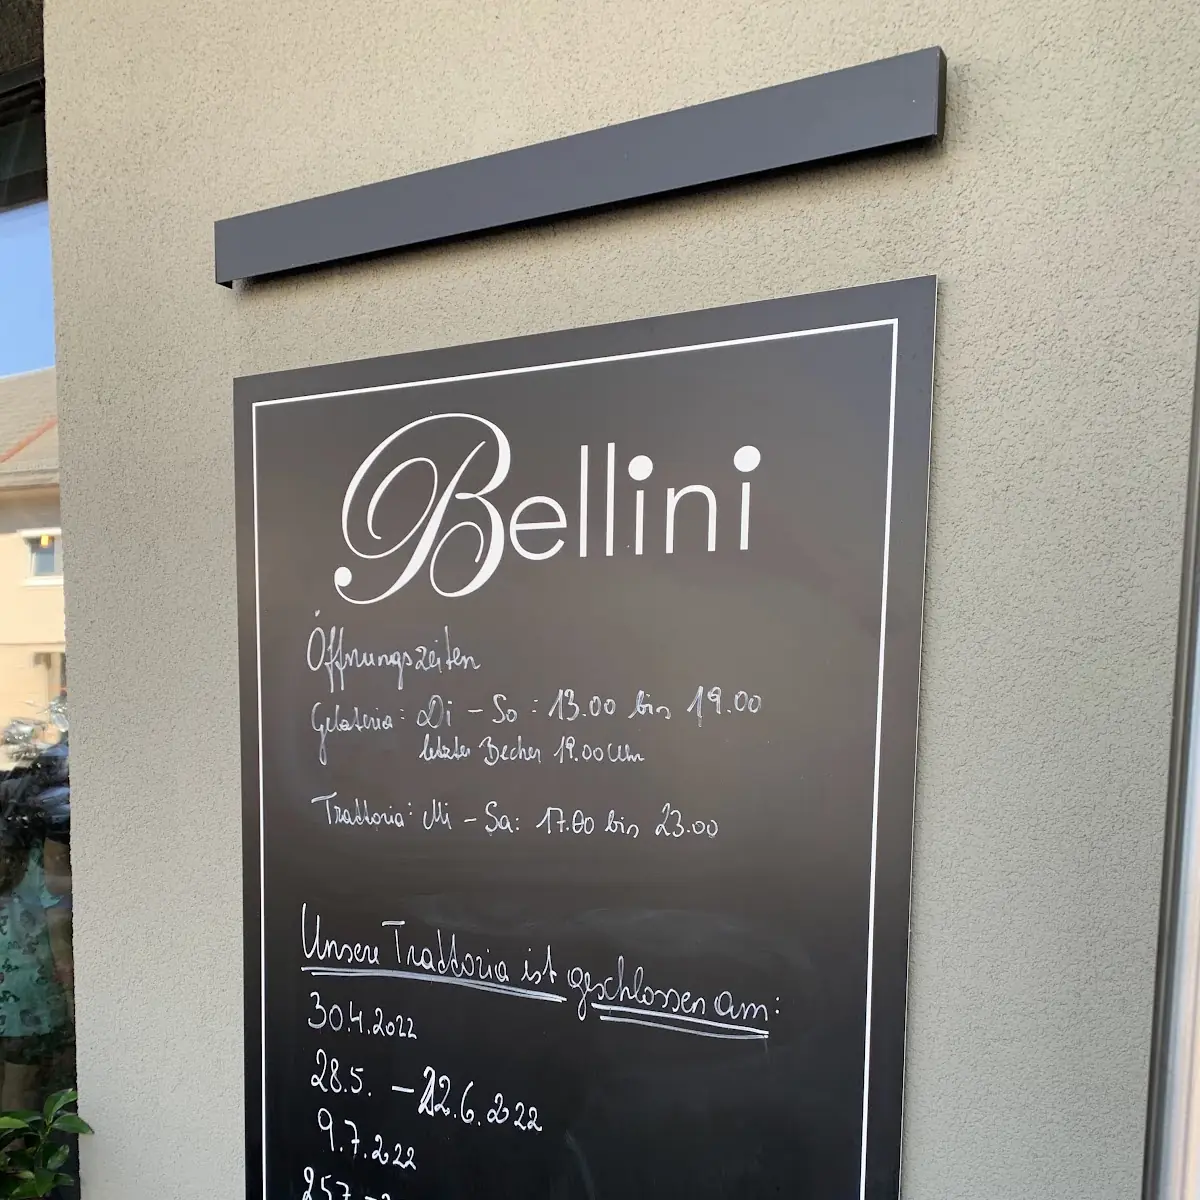 Bellini
Öffnungszeiten
Gelateria: Di - So: 13.00 bis 19.00
letzter Becher 19.00 Uhr
Trattoria: Mi - Sa: 17.00 bis 23.00
Unsere Trattoria ist geschlossen am:
30.4.2022
28.5. - 12.6.2022
9.7.2022